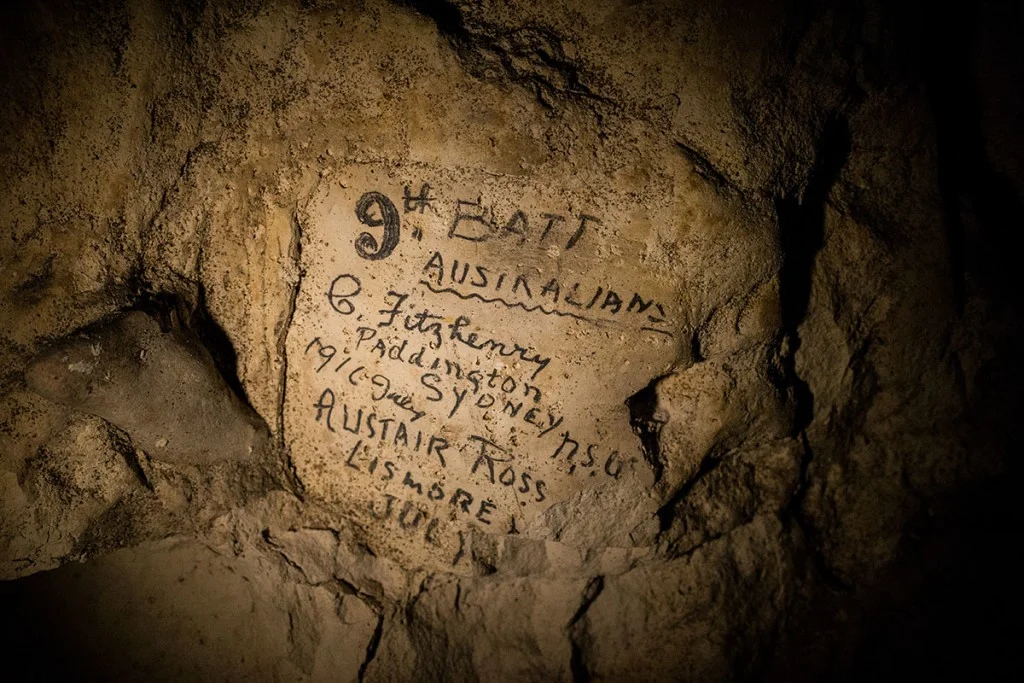 9TH. BATT
AUSTRALIANS
C. Fitzhenry
PADDINGTON
SYDNEY N.S.W
1916 July
ALISTAIR ROSS
LISMORE
JULY